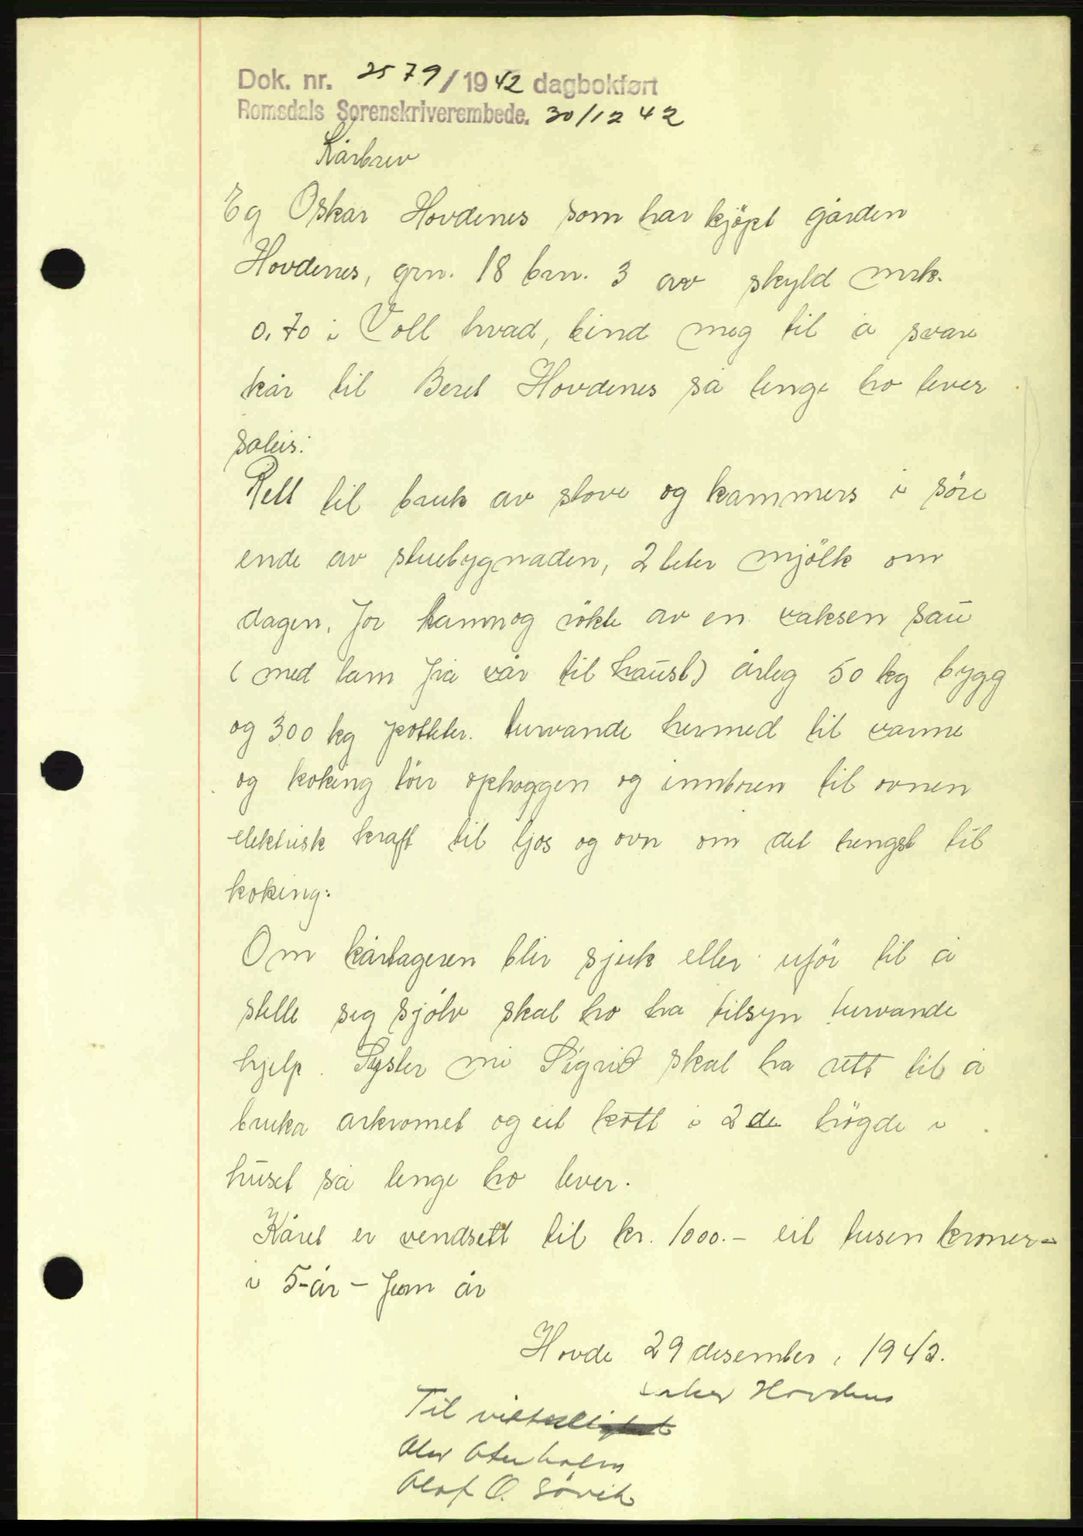 Dok. nr. 2579/1942 dagbokført
Romsdals Sorenskriverembede. 30/12 42
Kårbrev
Eg Oskar Hovdenes som har kjöpt garden
Hovdenes, grn. 18 brn. 3 av skyld mrk.
0,70 i Voll herad, bind meg til å svare
kår til Beret Hovdenes så lenge ho lever
soleis:
Rett til bruk av stove og kammers i söre
ende av stuebygnaden, 2 liter mjölk om
dagen, for hamn og rökte av en vaksen sau
(med lam fra vår til haust) årleg 50 kg bygg
og 300 kg potteter. turvande hermed til varme
og koking törr ophoggen og innboren til ovnen
elektrisk kraft til ljos og ovn om det trengst til
koking:
Om kårtageren blir sjuk eller uför til å
stelle seg sjölv skal ho ha tilsyn turvande
hjelp. Syster mi Sigrid skal ha rett til å
bruka arkromet og eit kott i 2de högde i
huset så lenge ho lever.
Kåret er verdsett til kr. 1000.- eit tusen kroner-
i 5-år - fem år
Hovde 29 desember, 1942.
Oskar Hovdenes
Til vitterlighet
Olav
Olaf O. Sövik